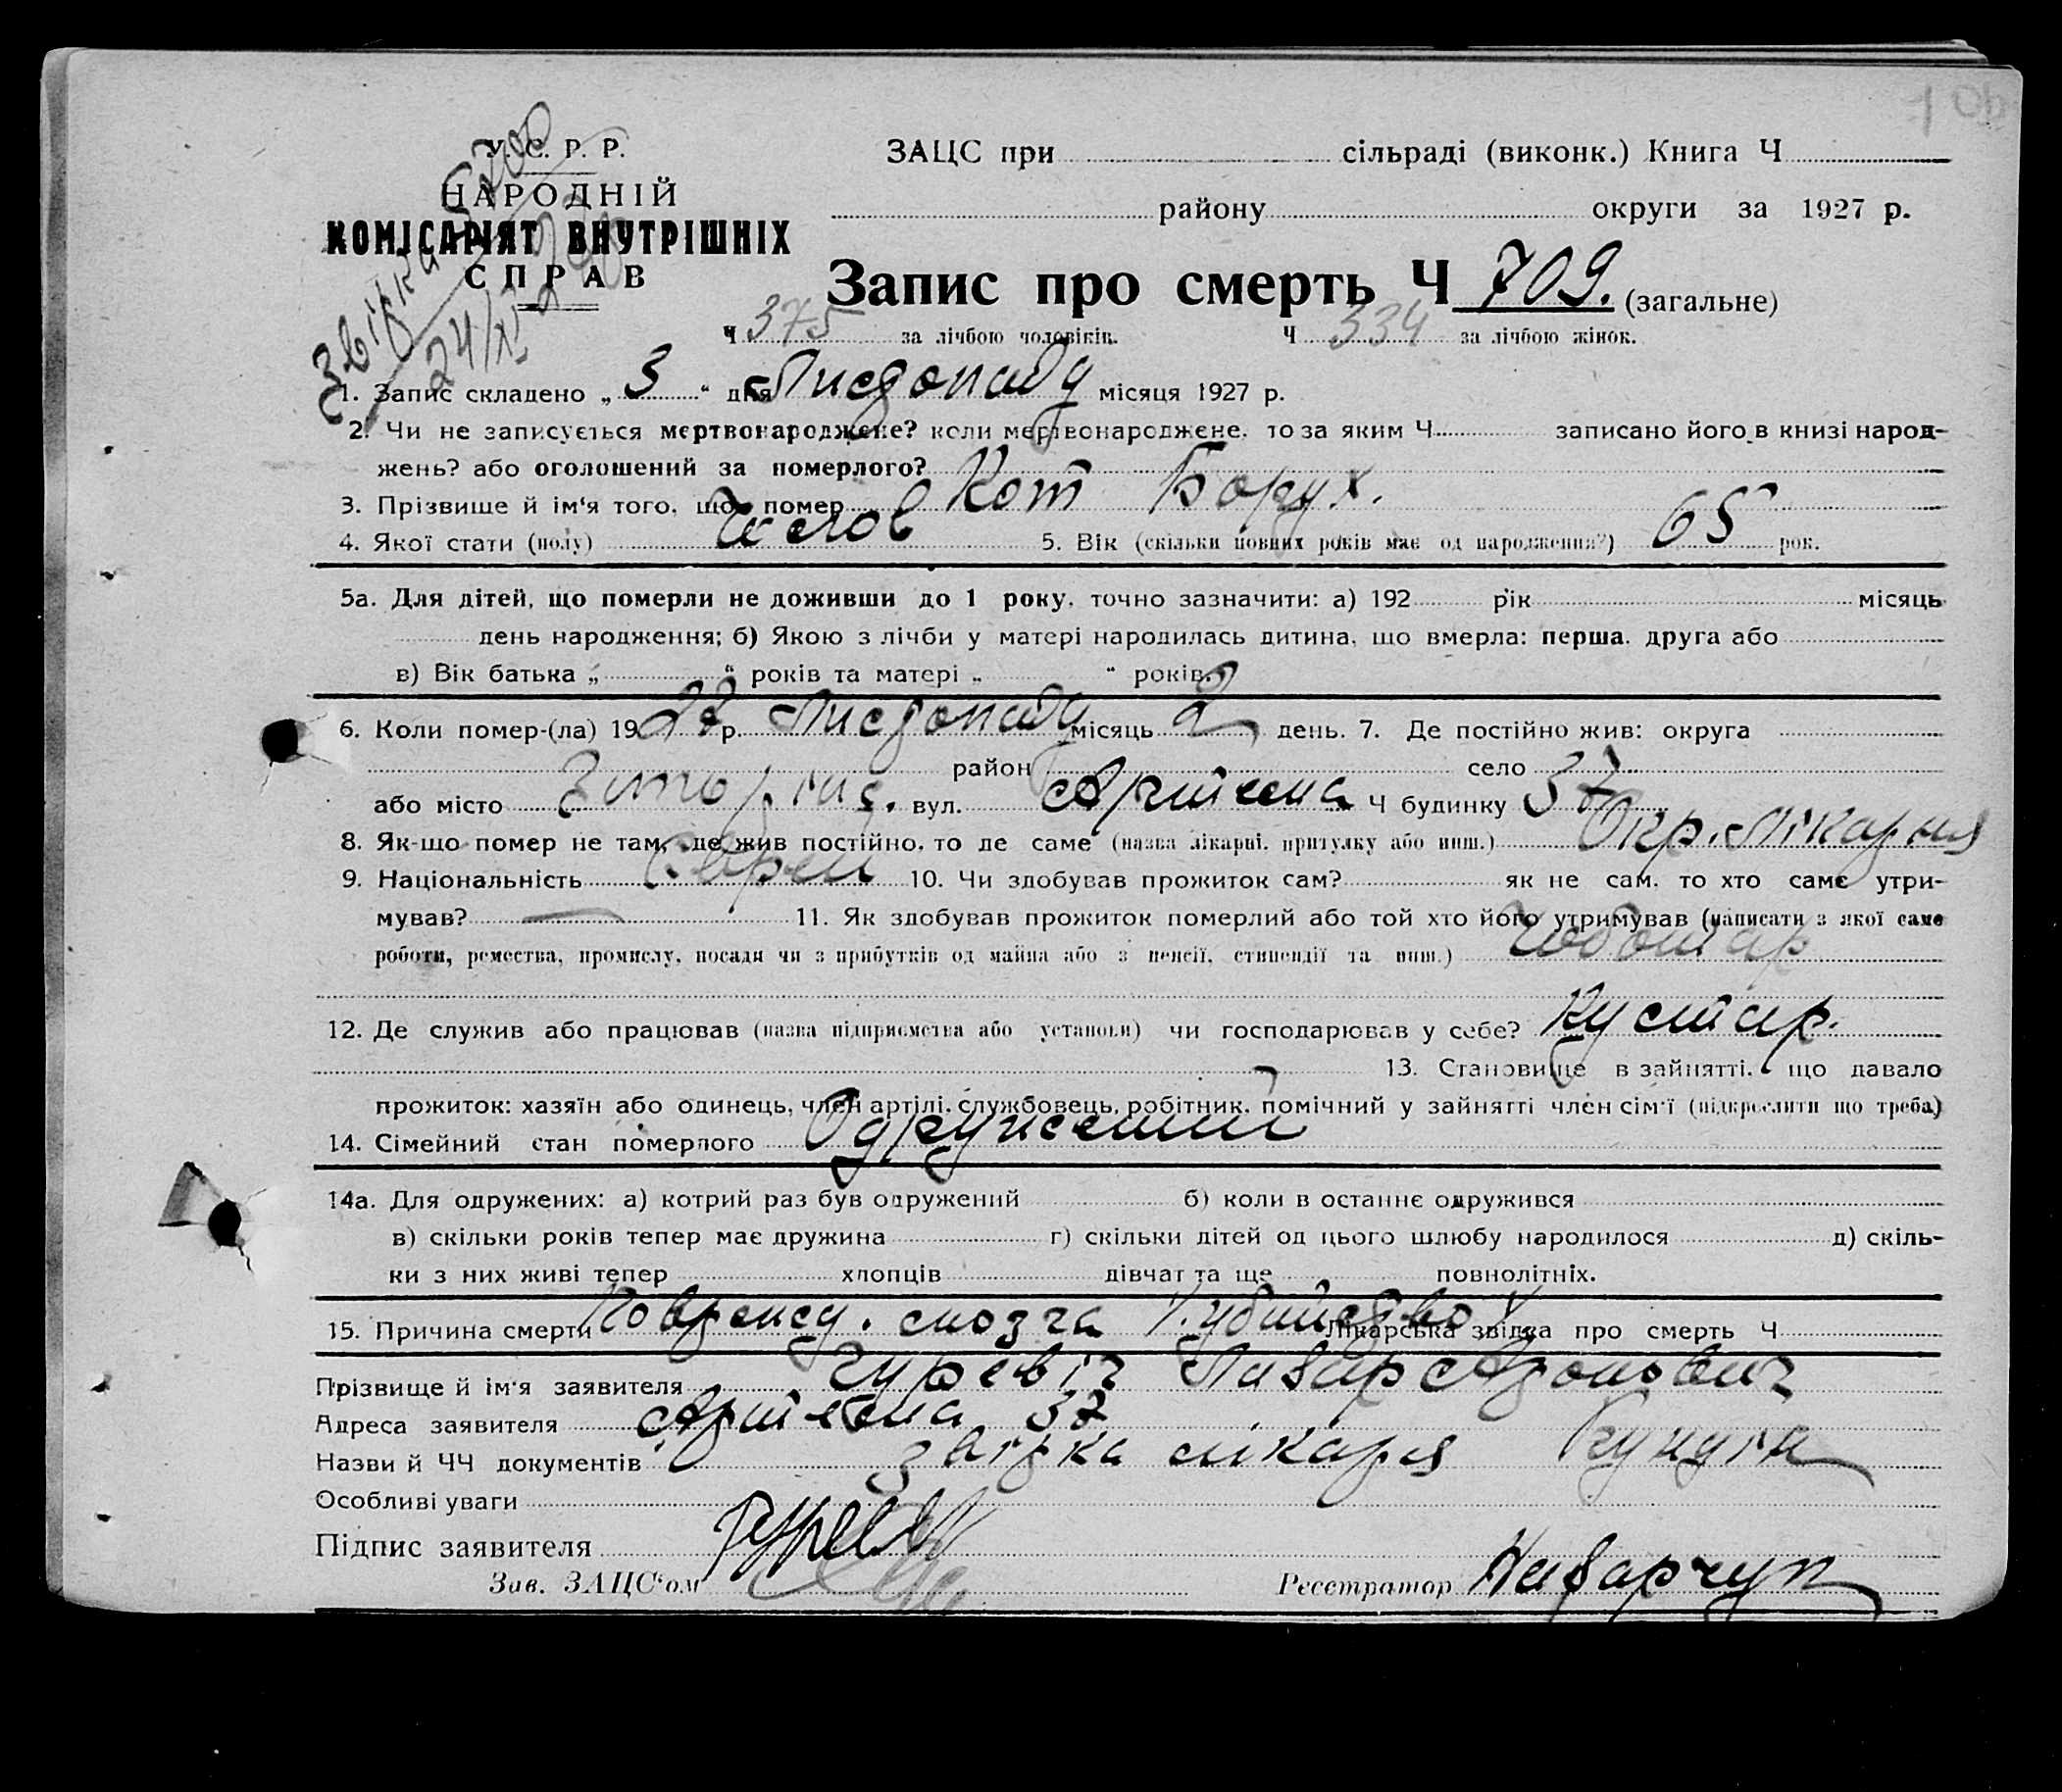 У. С. Р. Р.
НАРОДНІЙ
КОМІСАРІЯТ ВНУТРІШНІХ
СПРАВ
24/XI
ЗАЦС при сільраді (виконк.) Книга Ч
району округи за 1927 р.
Запис про смерть Ч 709. (загальне)
Ч 375 за лічбою чоловіків. Ч 334 за лічбою жінок.
1. Запис складено „ 3 “ дня Листопаду місяця 1927 р.
2. Чи не записується мертвонароджене? коли мертвонароджене, то за яким Ч записано його в книзі народ-
жень? або оголошений за померлого?
3. Прізвище й ім‘я того, що помер Кот Борух.
4. Якої статі (полу) Чолов 5. Вік (скільки повних років має од народження?) 65 рок.
5а. Для дітей, що померли не доживши до 1 року, точно зазначити: а) 192 рік місяць
день народження; б) Якою з лічби у матері народилась дитина, що вмерла: перша, друга або
в) Вік батька „ “ років та матері „ “ років.
6. Коли помер-(ла) 1927 р. Листопаду місяць 2 день. 7. Де постійно жив: округа
район село
або місто Житомір вул. Артьома Ч будинку 37
8. Як-що помер не там, де жив постійно, то де саме (назва лікарні, притулку або инш.) Окр. Лікарня
9. Національність Єврей 10. Чи здобував прожиток сам? як не сам, то хто саме утри-
мував? — 11. Як здобував прожиток померлий або той хто його утримував (написати з якої саме
роботи, ремества, промислу, посади чи з прибутків од майна або з пенсії, стипендії та инш.) Чоботар
12. Де служив або працював (назва підприємства або установи) чи господарював у себе? Кустар.
13. Становище в зайнятті, що давало
прожиток: хазяїн або одинець, член артілі, службовець, робітник, помічний у зайнятті член сім‘ї (підкреслити що треба)
14. Сімейний стан померлого Одружений
14а. Для одружених: а) котрий раз був одружений б) коли в останнє одружився
в) скільки років тепер має дружина г) скільки дітей од цього шлюбу народилося д) скіль-
ки з них живі тепер хлопців дівчат та ще повнолітніх.
15. Причина смерти мозга Лікарська звідка про смерть Ч
Прізвище й ім‘я заявителя Гуревіч
Адреса заявителя Артьома 37
Назви й ЧЧ документів лікаря
Особливі уваги
Підпис заявителя
Зав. ЗАЦС‘ом Реєстратор